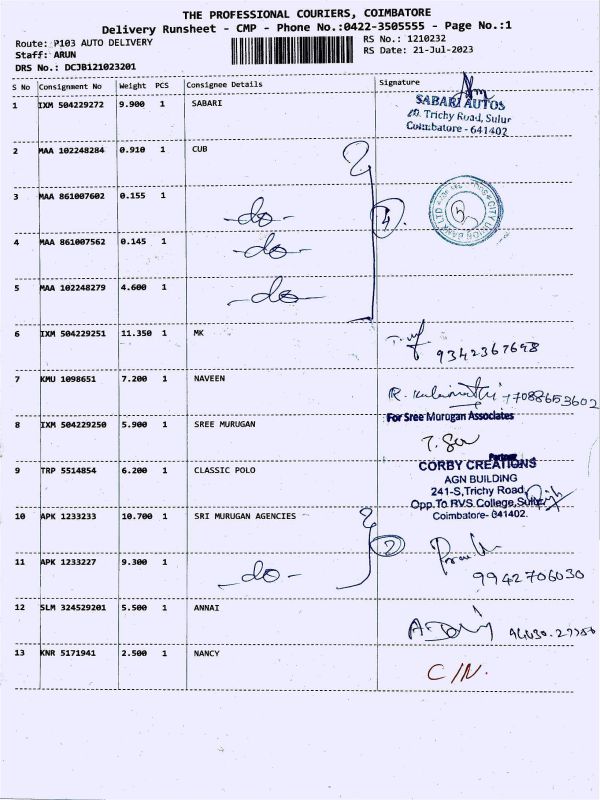 THE PROFESSIONAL COURIERS, COIMBATORE
Delivery Runsheet - CMP - Phone No.:0422-3505555 - Page No.:1
Route: P103 AUTO DELIVERY
RS No.: 1210232
Staff: ARUN
RS Date: 21-Jul-2023
DRS No.: DCJB121023201
S No Consignment No Weight PCS Consignee Details Signature
1 IXM 504229272 9.900 1 SABARI
SABARI AUTOS
Trichy Road, Sulur
Coimbatore - 641402
2 MAA 102248284 0.910 1 CUB
3 MAA 861007602 0.155 1 -do-
4
CITY UNION BANK LTD
4 MAA 861007562 0.145 1 -do-
5 MAA 102248279 4.600 1 -do-
6 IXM 504229251 11.350 1 MK
9342367698
7 KMU 1098651 7.200 1 NAVEEN
R. 77088653602
8 IXM 504229250 5.900 1 SREE MURUGAN
For Sree Murugan Associates
Partner
9 TRP 5514854 6.200 1 CLASSIC POLO
CORBY CREATIONS
AGN BUILDING
241-S,Trichy Road,
Opp.To RVS College,Sulur,
Coimbatore- 641402.
10 APK 1233233 10.700 1 SRI MURUGAN AGENCIES
2
11 APK 1233227 9.300 1 -do-
9942706030
12 SLM 324529201 5.500 1 ANNAI
13 KNR 5171941 2.500 1 NANCY
C/N.